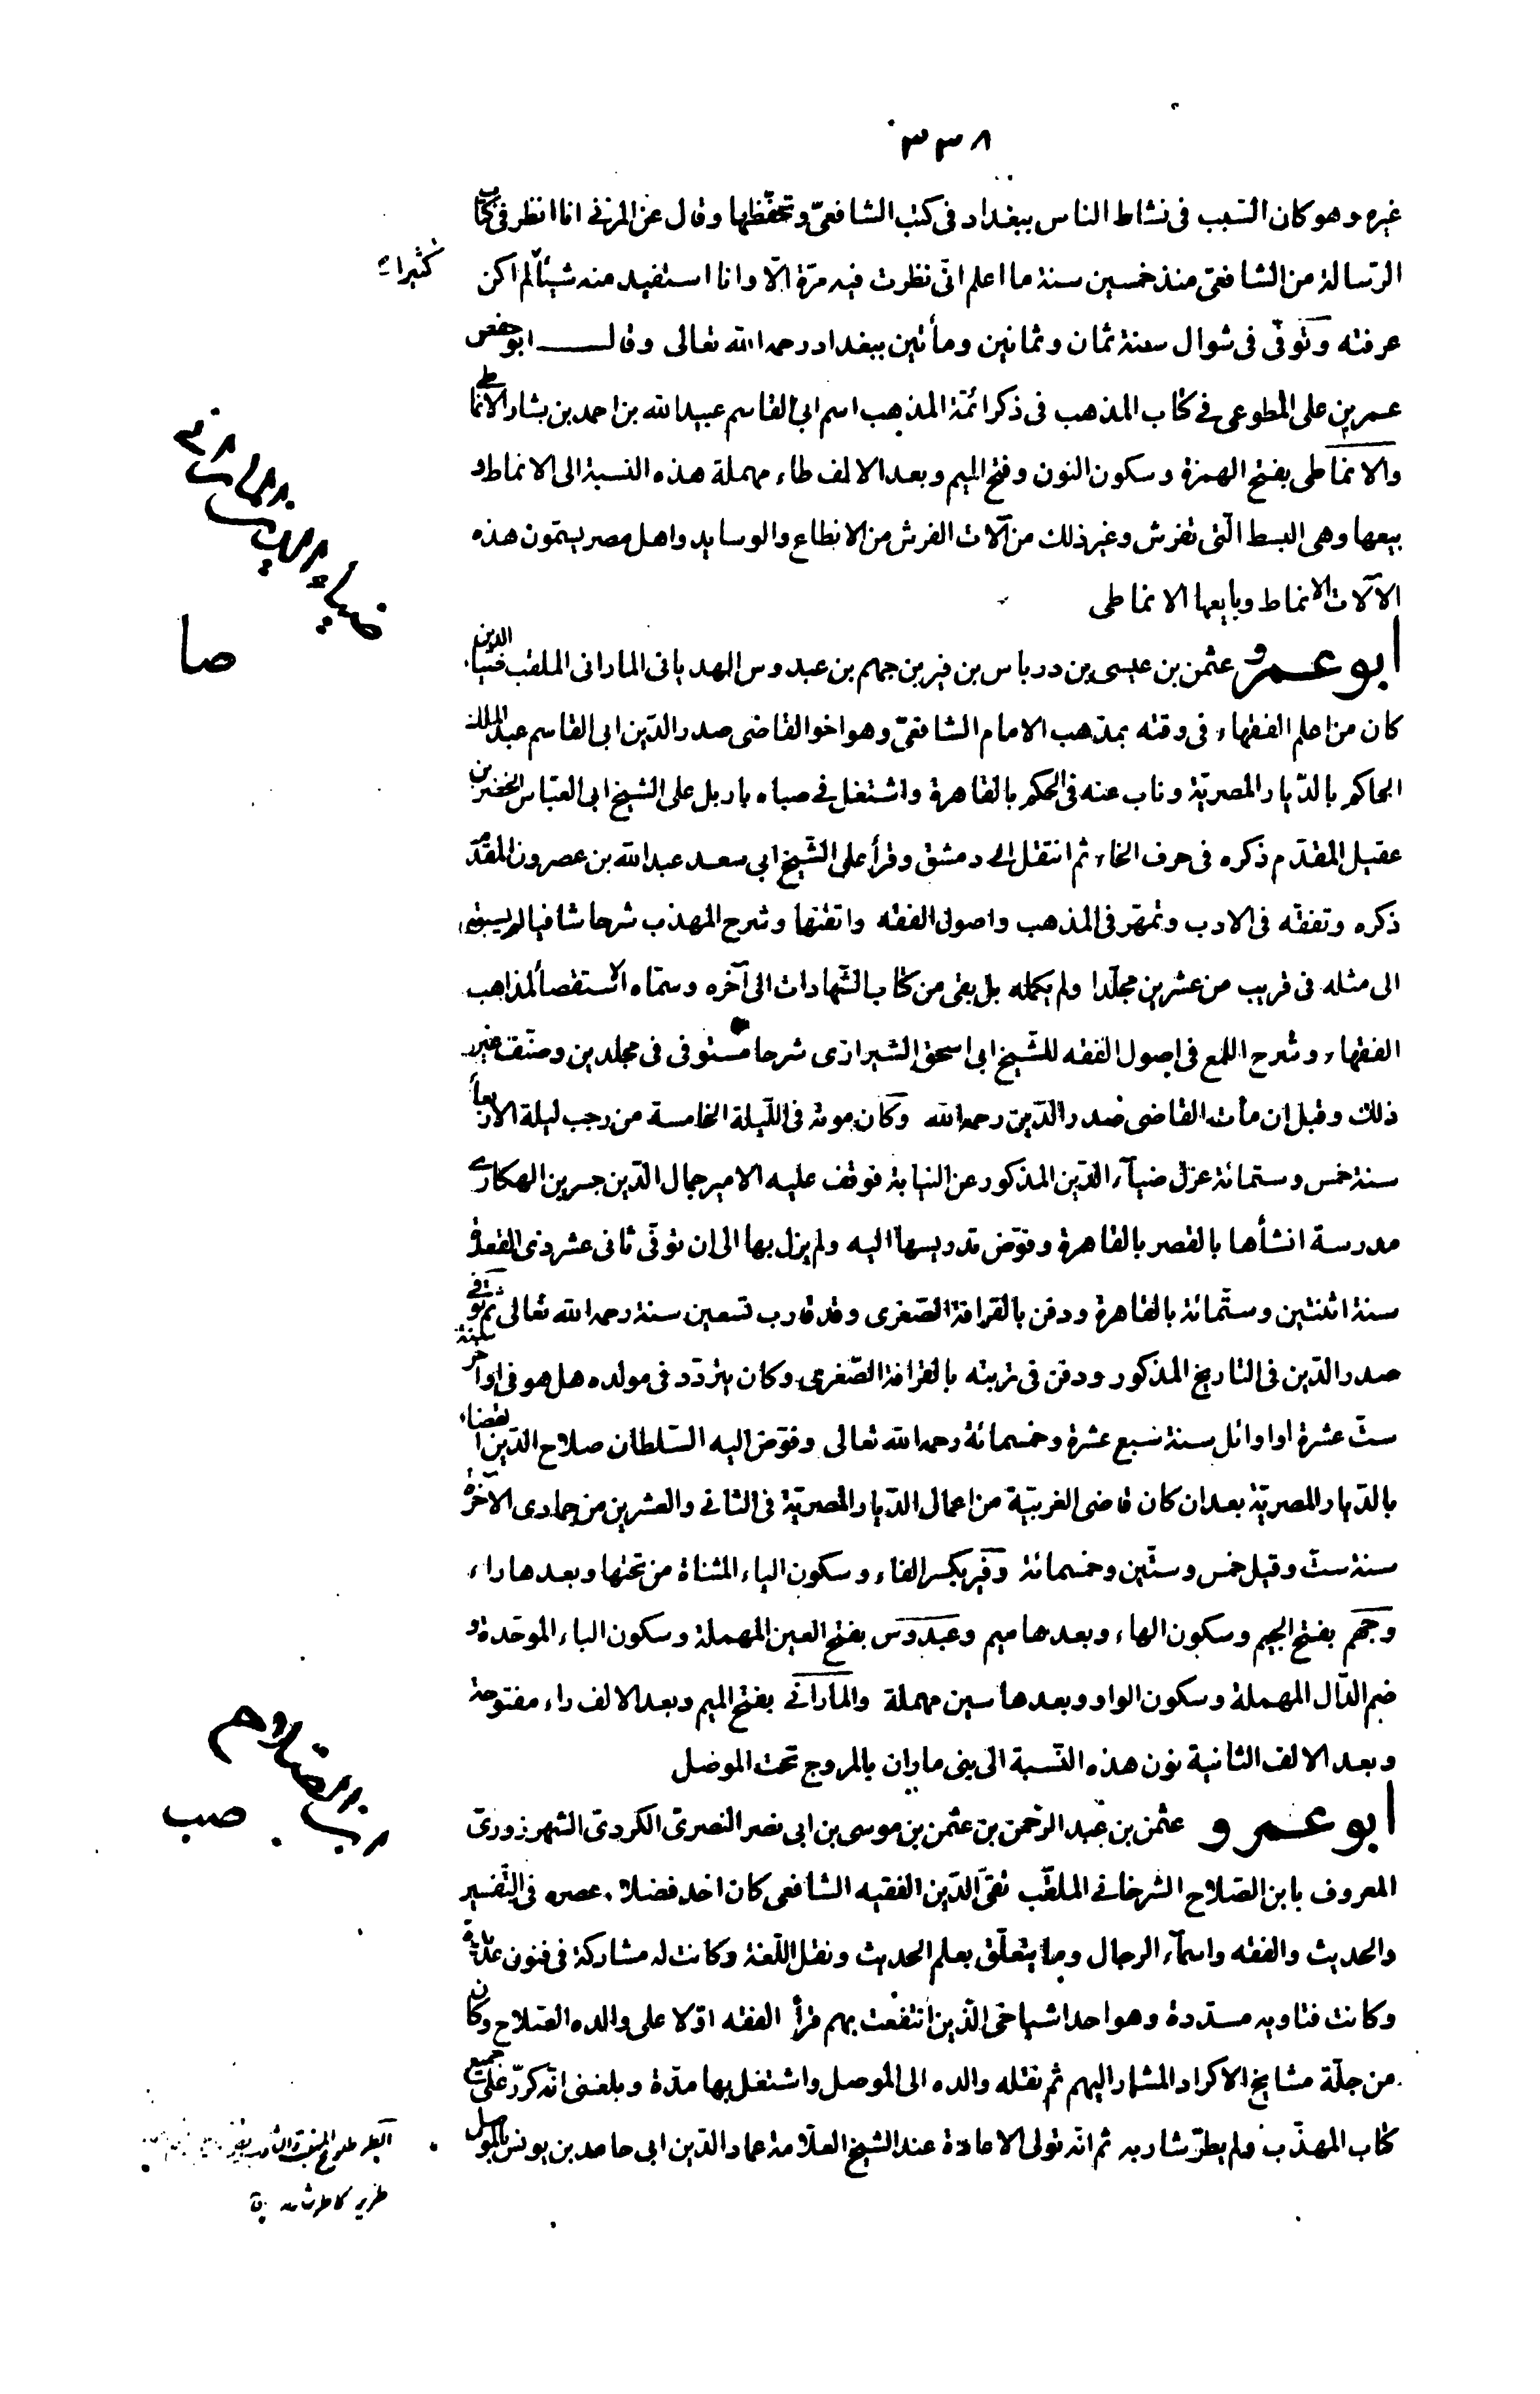 ٣٣٨
غيره وهو كان السبب فى نشاط الناس ببغداد فى كتب الشافعىّ وتحفّظها وقال عن المزنى انا انظر فى كتاب
الرّسالة من الشافعىّ منذ خمسين سنة ما اعلم انّى نظرت فيه مرّة الّا وانا استفيد منه شيئاً لم اكن
كثيرا
عرفته وتوفّى فى شوال سنة ثمان وثمانين ومأتين ببغداد رحمه الله تعالى وقال ابو حفص
عمر بن على المطوعى فى كتاب المذهب فى ذكر ائمّة المذهب اسم ابى القاسم عبيد الله بن احمد بن بشار الانماطى
والانماطى بفتح الهمزة وسكون النون وفتح الميم وبعد الالف طاء مهملة هذه النسبة الى الانماط و
بيعها وهى البسط الّتى تفرش وغير ذلك من آلات الفرش من الانطاع والوسايد واهل مصر يسمّون هذه
الآلات الانماط وبايعها الانماطى
ضياء الدين
صا
ابو عمرو عثمن بن عيسى بن درباس بن فير بن جهم بن عبدوس الهدبانى المارانى الملقب ضياء الدين
كان من اعلم الفقهاء فى وقته بمذهب الامام الشافعىّ وهو اخو القاضى صدر الدّين ابى القاسم عبد الملك
الحاكم بالدّيار المصريّة وناب عنه فى الحكم بالقاهرة واشتغل فى صباه باربل على الشيخ ابى العبّاس الخضر بن
عقيل المقدّم ذكره فى حرف الخاء ثم انتقل الى دمشق وقرأ على الشّيخ ابى سعد عبد الله بن عصرون المقدّم
ذكره وتفقّه فى الادب وتمهّر فى المذهب واصول الفقه واتقنها وشرح المهذب شرحا شافيا لم يسبق
الى مثله فى قريب من عشرين مجلّدا ولم يكمله بل بقى من كتاب الشّهادات الى آخره وسمّاه الاستقصأ لمذاهب
الفقهاء وشرح اللمع فى اصول الفقه للشّيخ ابى اسحق الشيرازى شرحا مستوفى فى مجلدين وصنّف غير
ذلك وقبل ان مأت القاضى صدر الدّين رحمه الله وكان موته فى اللّيلة الخامسة من رجب ليلة الاربعأ
سنة خمس وستمائة عزل ضيآء الدّين المذكور عن النيابة فوقف عليه الامير جمال الدّين جسرين الهكارى
مدرسة انشأها بالقصر بالقاهرة وفوّض تدريسها اليه ولم يزل بها الى ان توفّى ثانى عشر ذى القعدة
سنة اثنتين وستّمائة بالقاهرة ودفن بالقرافة الصّغرى وقد قارب تسعين سنة رحمه الله تعالى ثم توفى
صدر الدّين فى التاريخ المذكور ودفن فى تربته بالقرافة الصّغرى وكان يتردّد فى مولده هل هو فى اواخر سنة
ستّ عشرة او اوائل سنة سبع عشرة وخمسمائة رحمه الله تعالى وفوّض اليه السّلطان صلاح الدّين القضاء
بالدّيار المصريّة بعد ان كان قاضى الغربيّة من اعمال الدّيار المصريّة فى الثانى والعشرين من جمادى الآخرة
سنة ستّ وقيل خمس وستّين وخمسمائة وفير بكسر الفاء وسكون الياء المثناة من تحتها وبعدها راء
وجهم بفتح الجيم وسكون الهاء وبعدها ميم وعبدوس بفتح العين المهملة وسكون الباء الموحّدة و
ضم الدّال المهملة وسكون الواو وبعدها سين مهملة والمارانى بفتح الميم وبعد الالف راء مفتوحة
وبعد الالف الثانية نون هذه النّسبة الى بنى ماران بالمروج تحت الموصل
ابن الصلاح
صب
ابو عمرو عثمن بن عبد الرّحمن بن عثمن بن موسى بن ابى نصر النصرىّ الكردىّ الشهرزورىّ
المعروف بابن الصّلاح الشرخانى الملقّب تقىّ الدّين الفقيه الشافعى كان احد فضلاء عصره فى التّفسير
والحديث والفقه واسمآء الرجال وما يتعلّق بعلم الحديث ونقل اللّغة وكانت له مشاركة فى فنون عدّة
وكانت فتاويه مسدّدة وهو احد اشياخى الّذين انتفعت بهم قرأ الفقه اوّلا على والده الصّلاح وكان
من جلّة مشايخ الاكراد المشار اليهم ثم نقله والده الى الموصل واشتغل بها مدّة وبلغنى انّه كرّر على جميع
كتاب المهذّب ولم يطرّ شاربه ثم انّه تولى الاعادة عند الشيخ العلّامة عماد الدّين ابى حامد بن يونس بالموصل